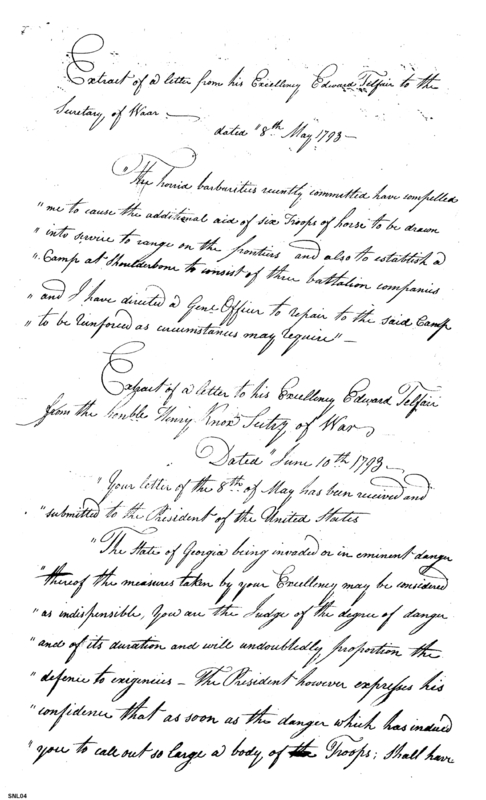 Extract of a letter from his Excellency Edward Telfair to the
Secretary of Waar —
dated "8th May 1793 —
The horrid barburities recently committed have compelled
"me to cause the additional aid of six Troops of horse to be drawn
"into service to range on the frontiers and also to establish a
"Camp at Shoulderbone to consist of three battalion companies
"and I have directed a Genl Officer to repair to the said Camp
"to be reinforced as circumstances may require" —
Extract of a letter to his Excellency Edward Telfair
from the honble Henry Knox Secrty of War
Dated "June 10th 1793 —
"Your letter of the 8th of May has been received and
"submitted to the President of the United States
"The State of Georgia being invaded or in eminent danger
"thereof the measures taken by your Excellency may be considered
"as indispensible, You are the Judge of the degree of danger
"and of its duration and will undoubtedly proportion the
"defence to exigencies — The President however expresses his
"confidence that as soon as the danger which has induced
"you to call out so large a body of the Troops; Shall have
SNL04